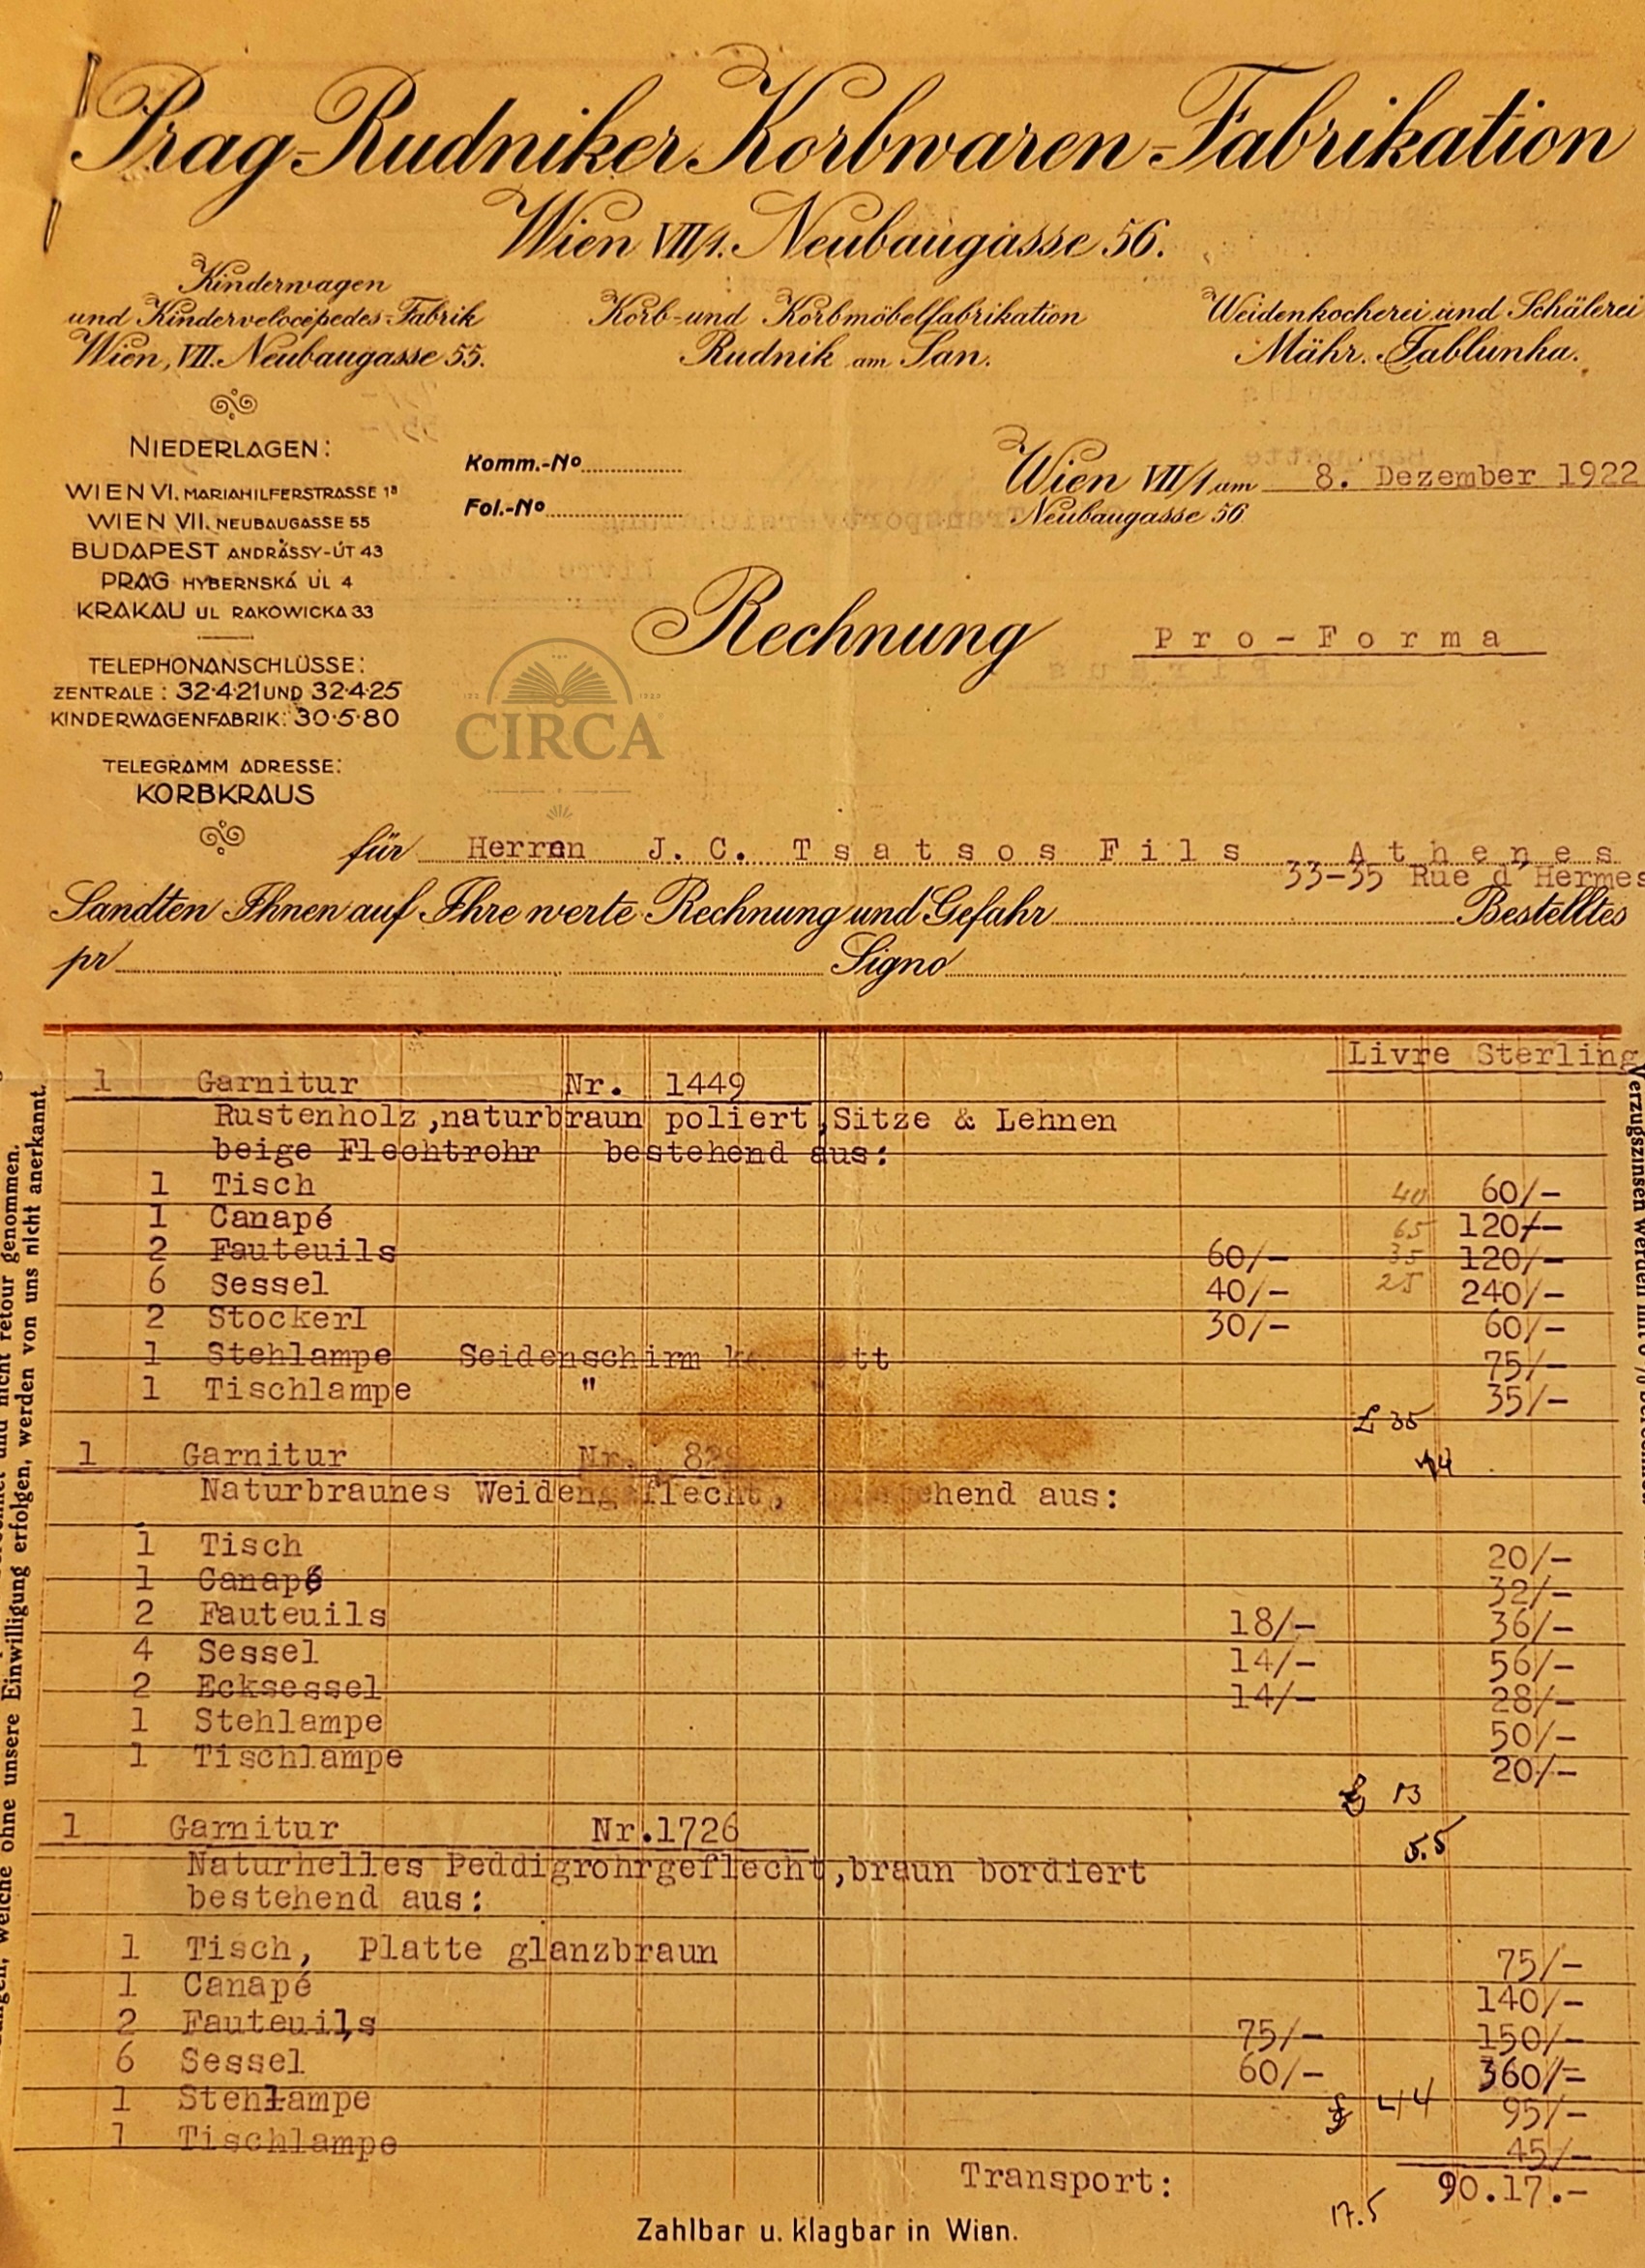 Prag-Rudniker Korbwaren-Fabrikation
Wien VII/1. Neubaugasse 56.
Kinderwagen
und Kindervelocepedes-Fabrik
Wien, VII. Neubaugasse 55.
Korb- und Korbmöbelfabrikation
Rudnik am San.
Weidenkocherei und Schälerei
Mähr. Jablunka.
NIEDERLAGEN:
WIEN VI. MARIAHILFERSTRASSE 1ᴮ
WIEN VII. NEUBAUGASSE 55
BUDAPEST ANDRÁSSY-ÚT 43
PRAG HYBERNSKÁ UL 4
KRAKAU UL RAKOWICKA 33
TELEPHONANSCHLÜSSE:
ZENTRALE: 32·4·21 UND 32·4·25
KINDERWAGENFABRIK: 30·5·80
TELEGRAMM ADRESSE:
KORBKRAUS
Komm.-No
Fol.-No
Wien VII/1 am 8. Dezember 1922
Neubaugasse 56
Rechnung Pro-Forma
CIRCA
für Herren J. C. Tsatsos Fils Athenes
33-35 Rue d'Hermes
Sandten Ihnen auf Ihre werte Rechnung und Gefahr Bestelltes
pr Signo
Livre Sterling
1 Garnitur Nr. 1449
Rustenholz,naturbraun poliert,Sitze & Lehnen
beige Flechtrohr bestehend aus:
1 Tisch 40 60/-
1 Canapé 65 120/-
2 Fauteuils 60/- 35 120/-
6 Sessel 40/- 25 240/-
2 Stockerl 30/- 60/-
1 Stehlampe Seidenschirm 75/-
1 Tischlampe " 35/-
£ 35
1 Garnitur Nr.
Naturbraunes Weidengeflecht, aus:
1 Tisch 20/-
1 Canapé 32/-
2 Fauteuils 18/- 36/-
4 Sessel 14/- 56/-
2 Ecksessel 14/- 28/-
1 Stehlampe 50/-
1 Tischlampe 20/-
£ 13
1 Garnitur Nr.1726
5.5
Naturhelles Peddigrohrgeflecht,braun bordiert
bestehend aus:
1 Tisch, Platte glanzbraun 75/-
1 Canapé 140/-
2 Fauteuils 75/- 150/-
6 Sessel 60/- 360/=
1 Stehlampe £ 44 95/-
1 Tischlampe 45/-
Transport: 90.17.-
17.5
Zahlbar u. klagbar in Wien.
nicht retour genommen.
welche ohne unsere Einwilligung erfolgen, werden von uns nicht anerkannt.
Verzugszinsen werden mit